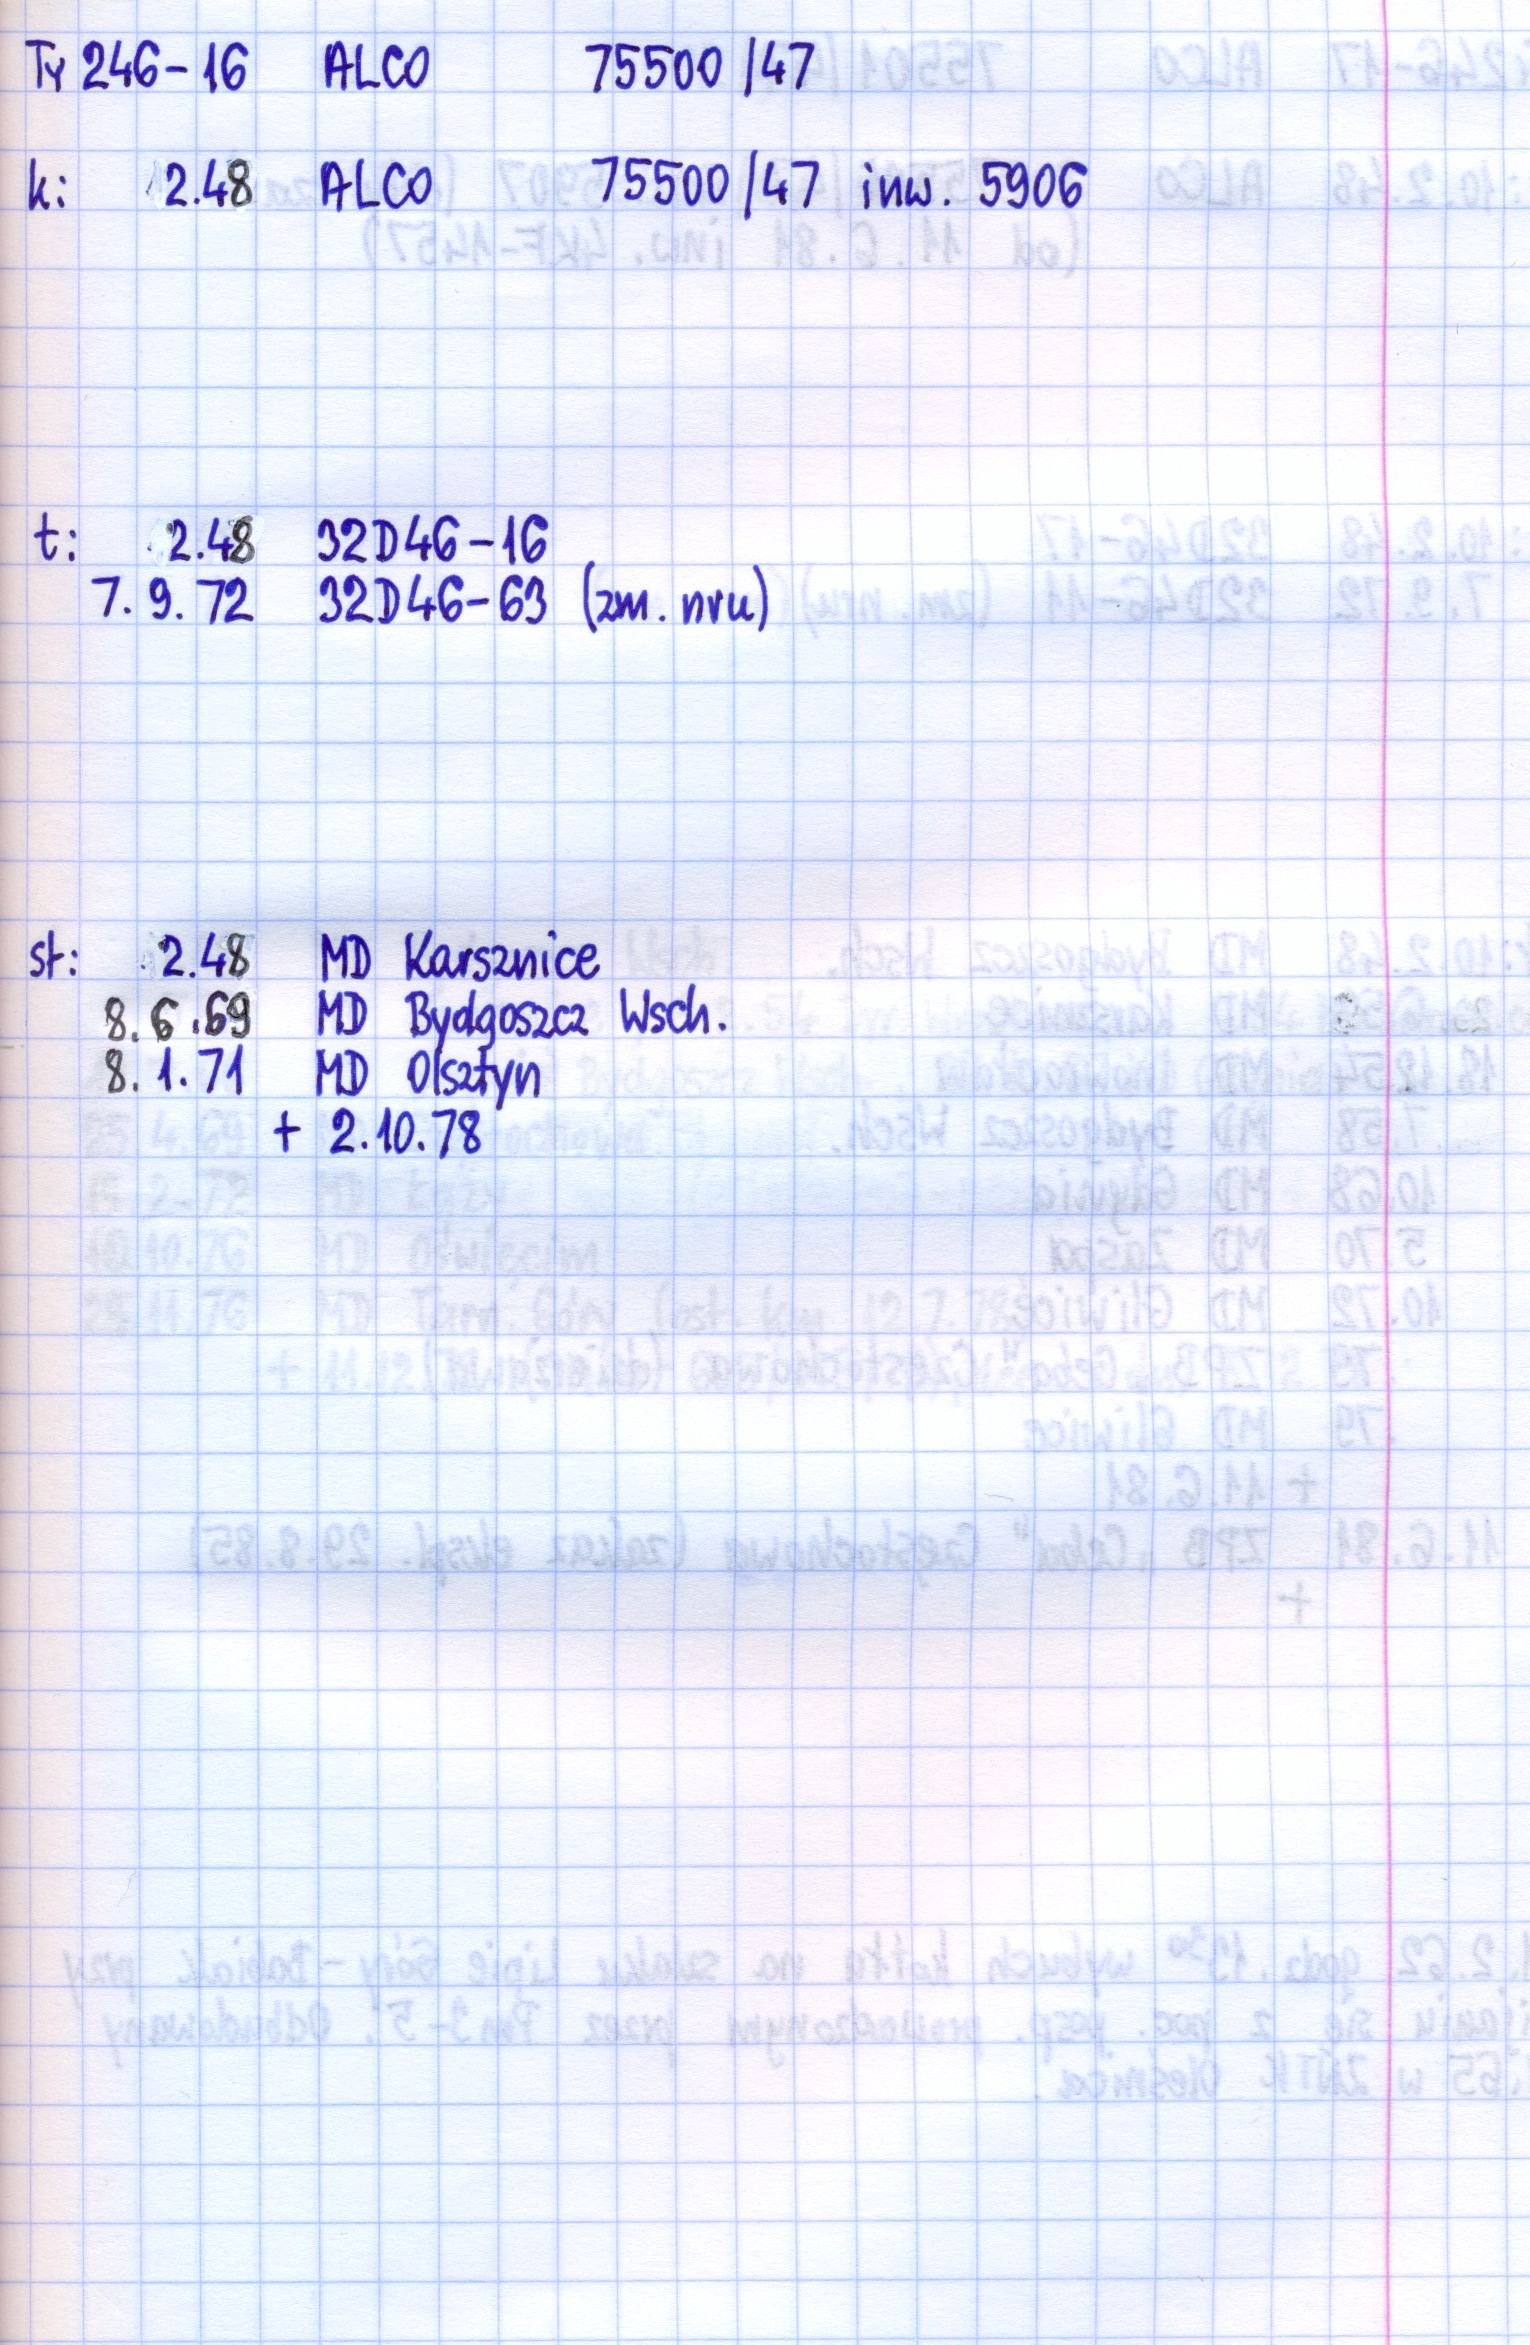 Ty 246-16 ALCO 75500/47
k: 2.48 ALCO 75500/47 inw. 5906
t: 2.48 32D46-16
7.9.72 32D46-63 (zm. nru)
st: 2.48 MD Karsznice
8.6.69 MD Bydgoszcz Wsch.
8.1.71 MD Olsztyn
+ 2.10.78